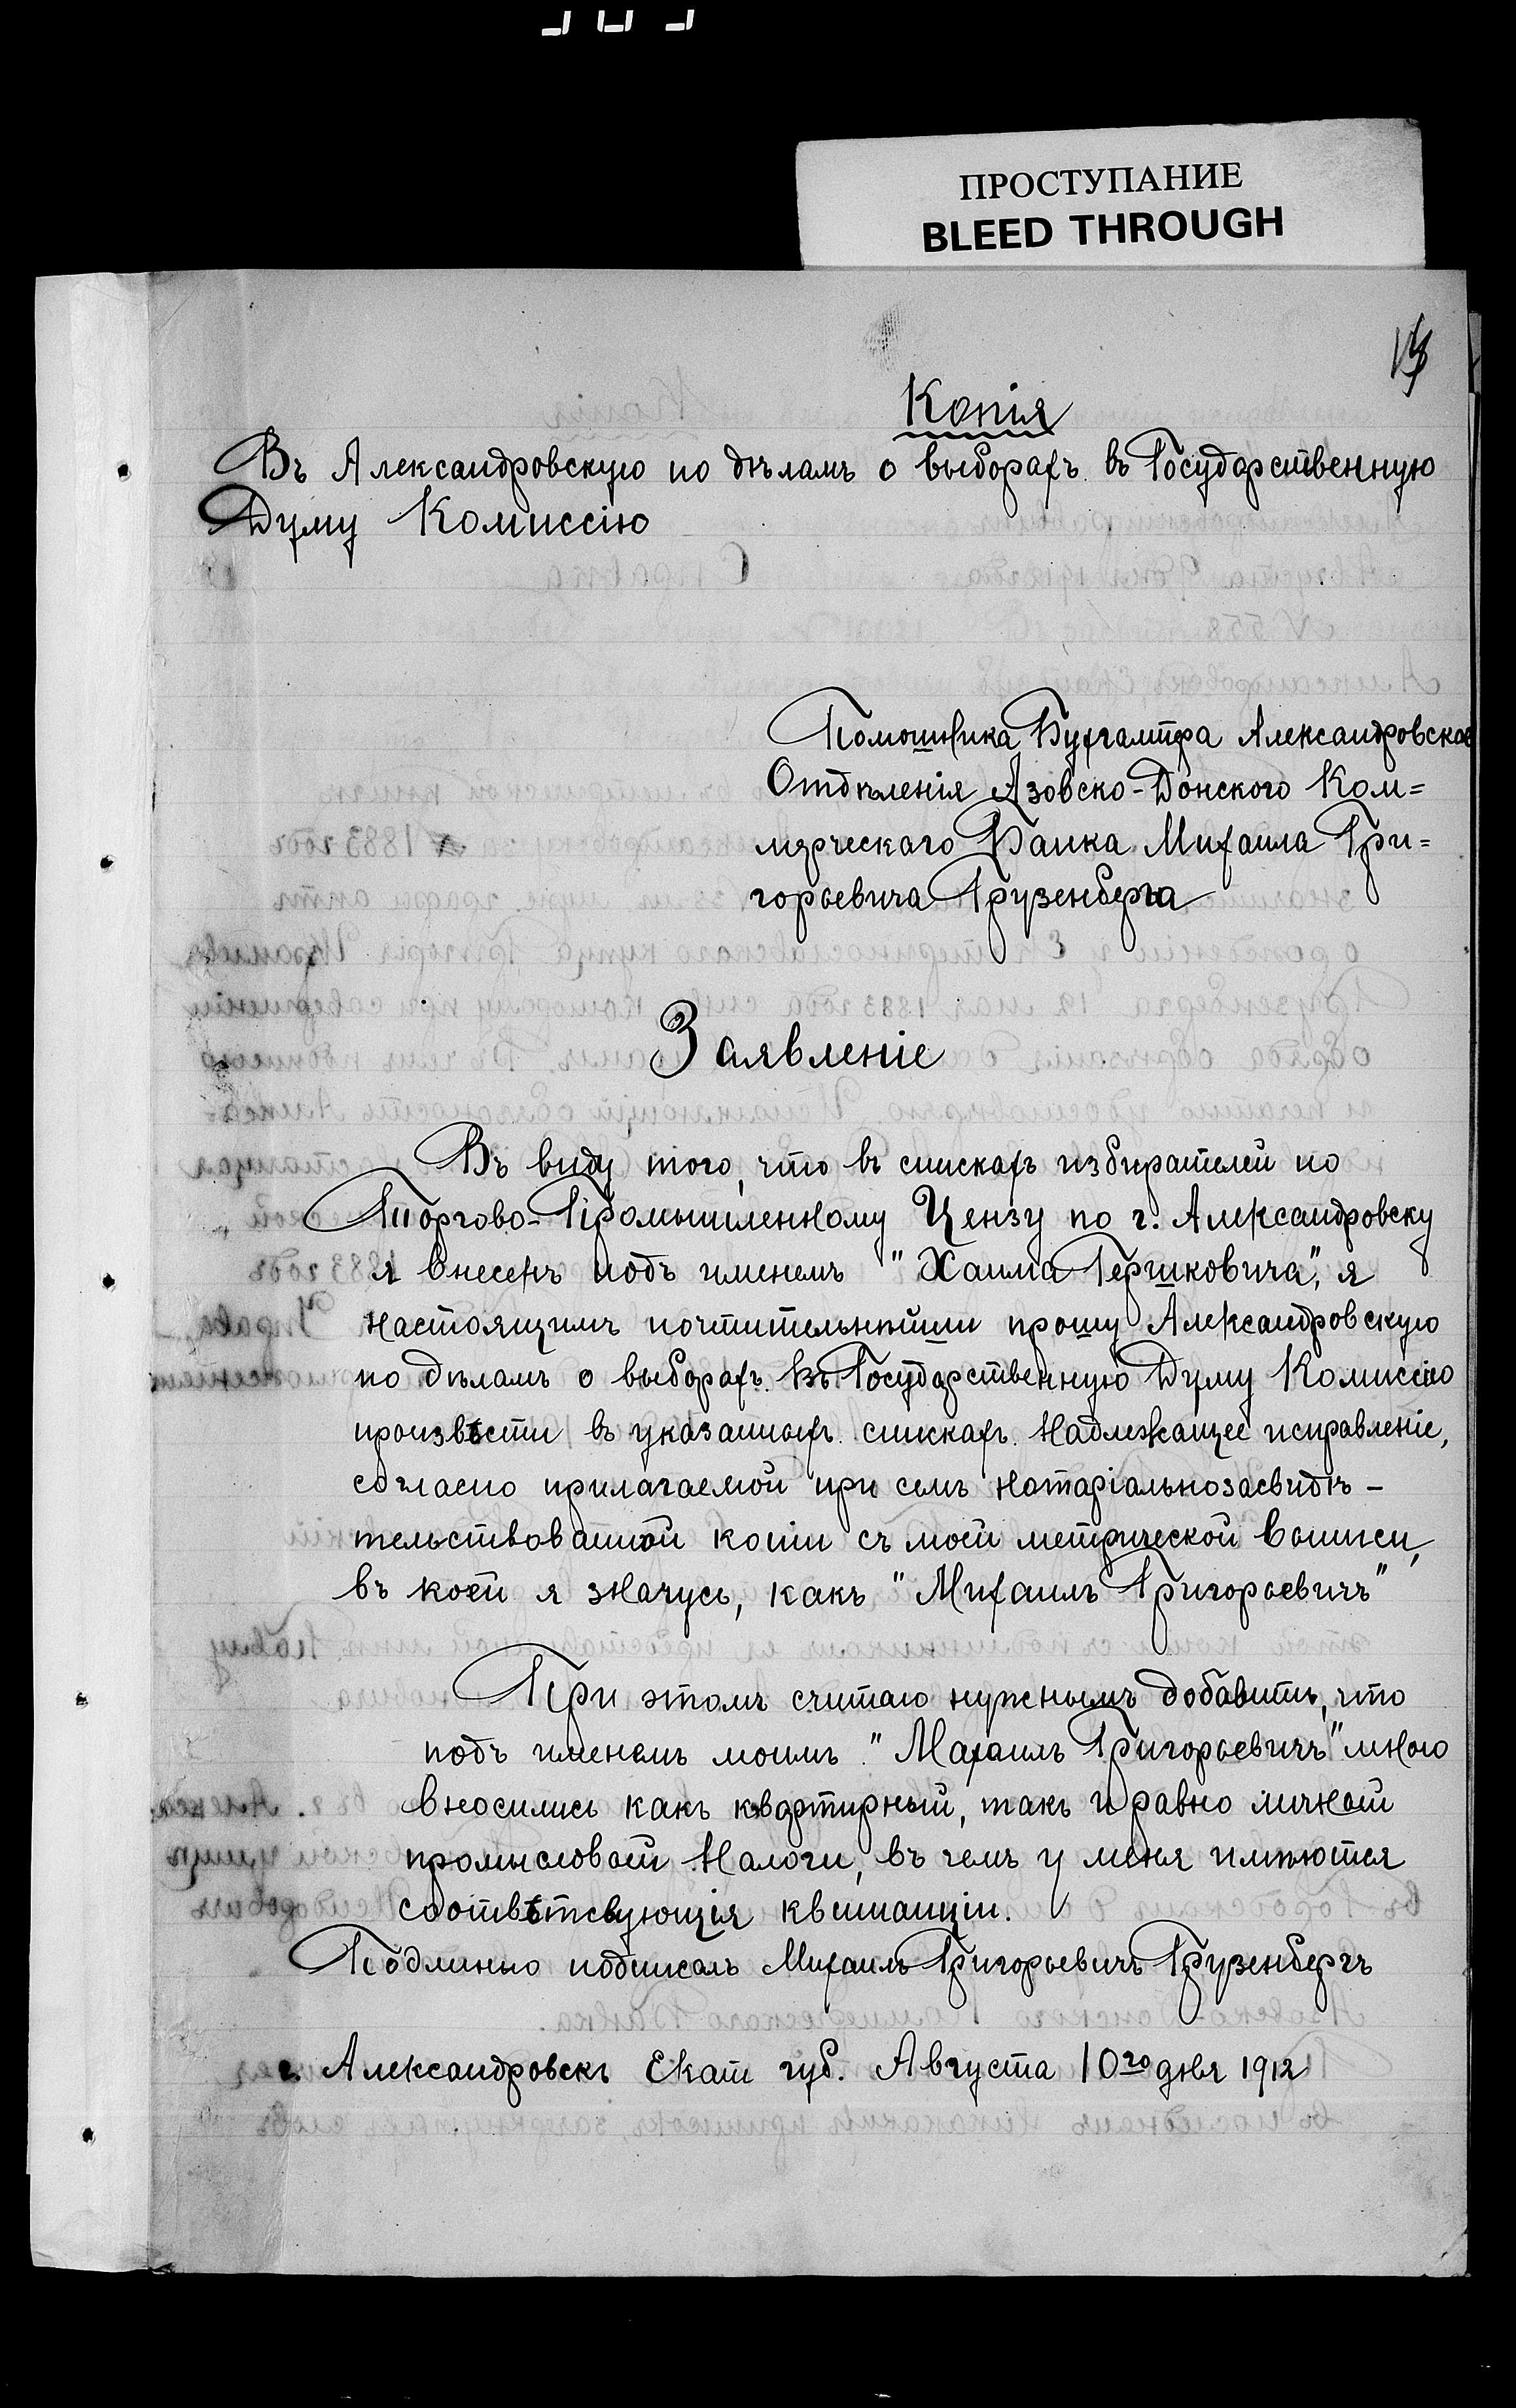 ПРОСТУПАНИЕ
BLEED THROUGH
Копія
Въ Александровскую по дѣламъ о выборахъ въ Государственную
Думу Комиссію
Помошника Бухгалтера Александровскаго
Отдѣленія Азовско-Донского Ком=
мерческаго Банка Михаила Гри=
горьевича Грузенберга
Заявленіе
Въ виду того, что въ спискахъ избирателей по
Торгово-Промышленному Цензу по г. Александровску
я внесенъ подъ именемъ "Хаима Гершковича", я
настоящимъ почтительнѣйши прошу Александровскую
по дѣламъ о выборахъ въ Государственную Думу Комиссію
произвести въ указанныхъ спискахъ надлежащее исправленіе,
согласно прилагаемой при семъ нотаріальнозасвидѣ-
тельствованной копіи съ моей метрической выписи,
въ коей я значусь, какъ "Михаилъ Григорьевичъ"
При этомъ считаю нужнымъ добавить, что
подъ именемъ моимъ "Махаилъ Григорьевичъ" мною
вносились какъ квартирный, такъ и равно личной
промысловой налоги, въ чемъ у меня имѣются
соотвѣтсвующія квитанціи.
Подлинно подписалъ Михаилъ Григорьевичъ Грузенбергъ
г. Александровскъ Екат губ. Августа 10го дня 1912